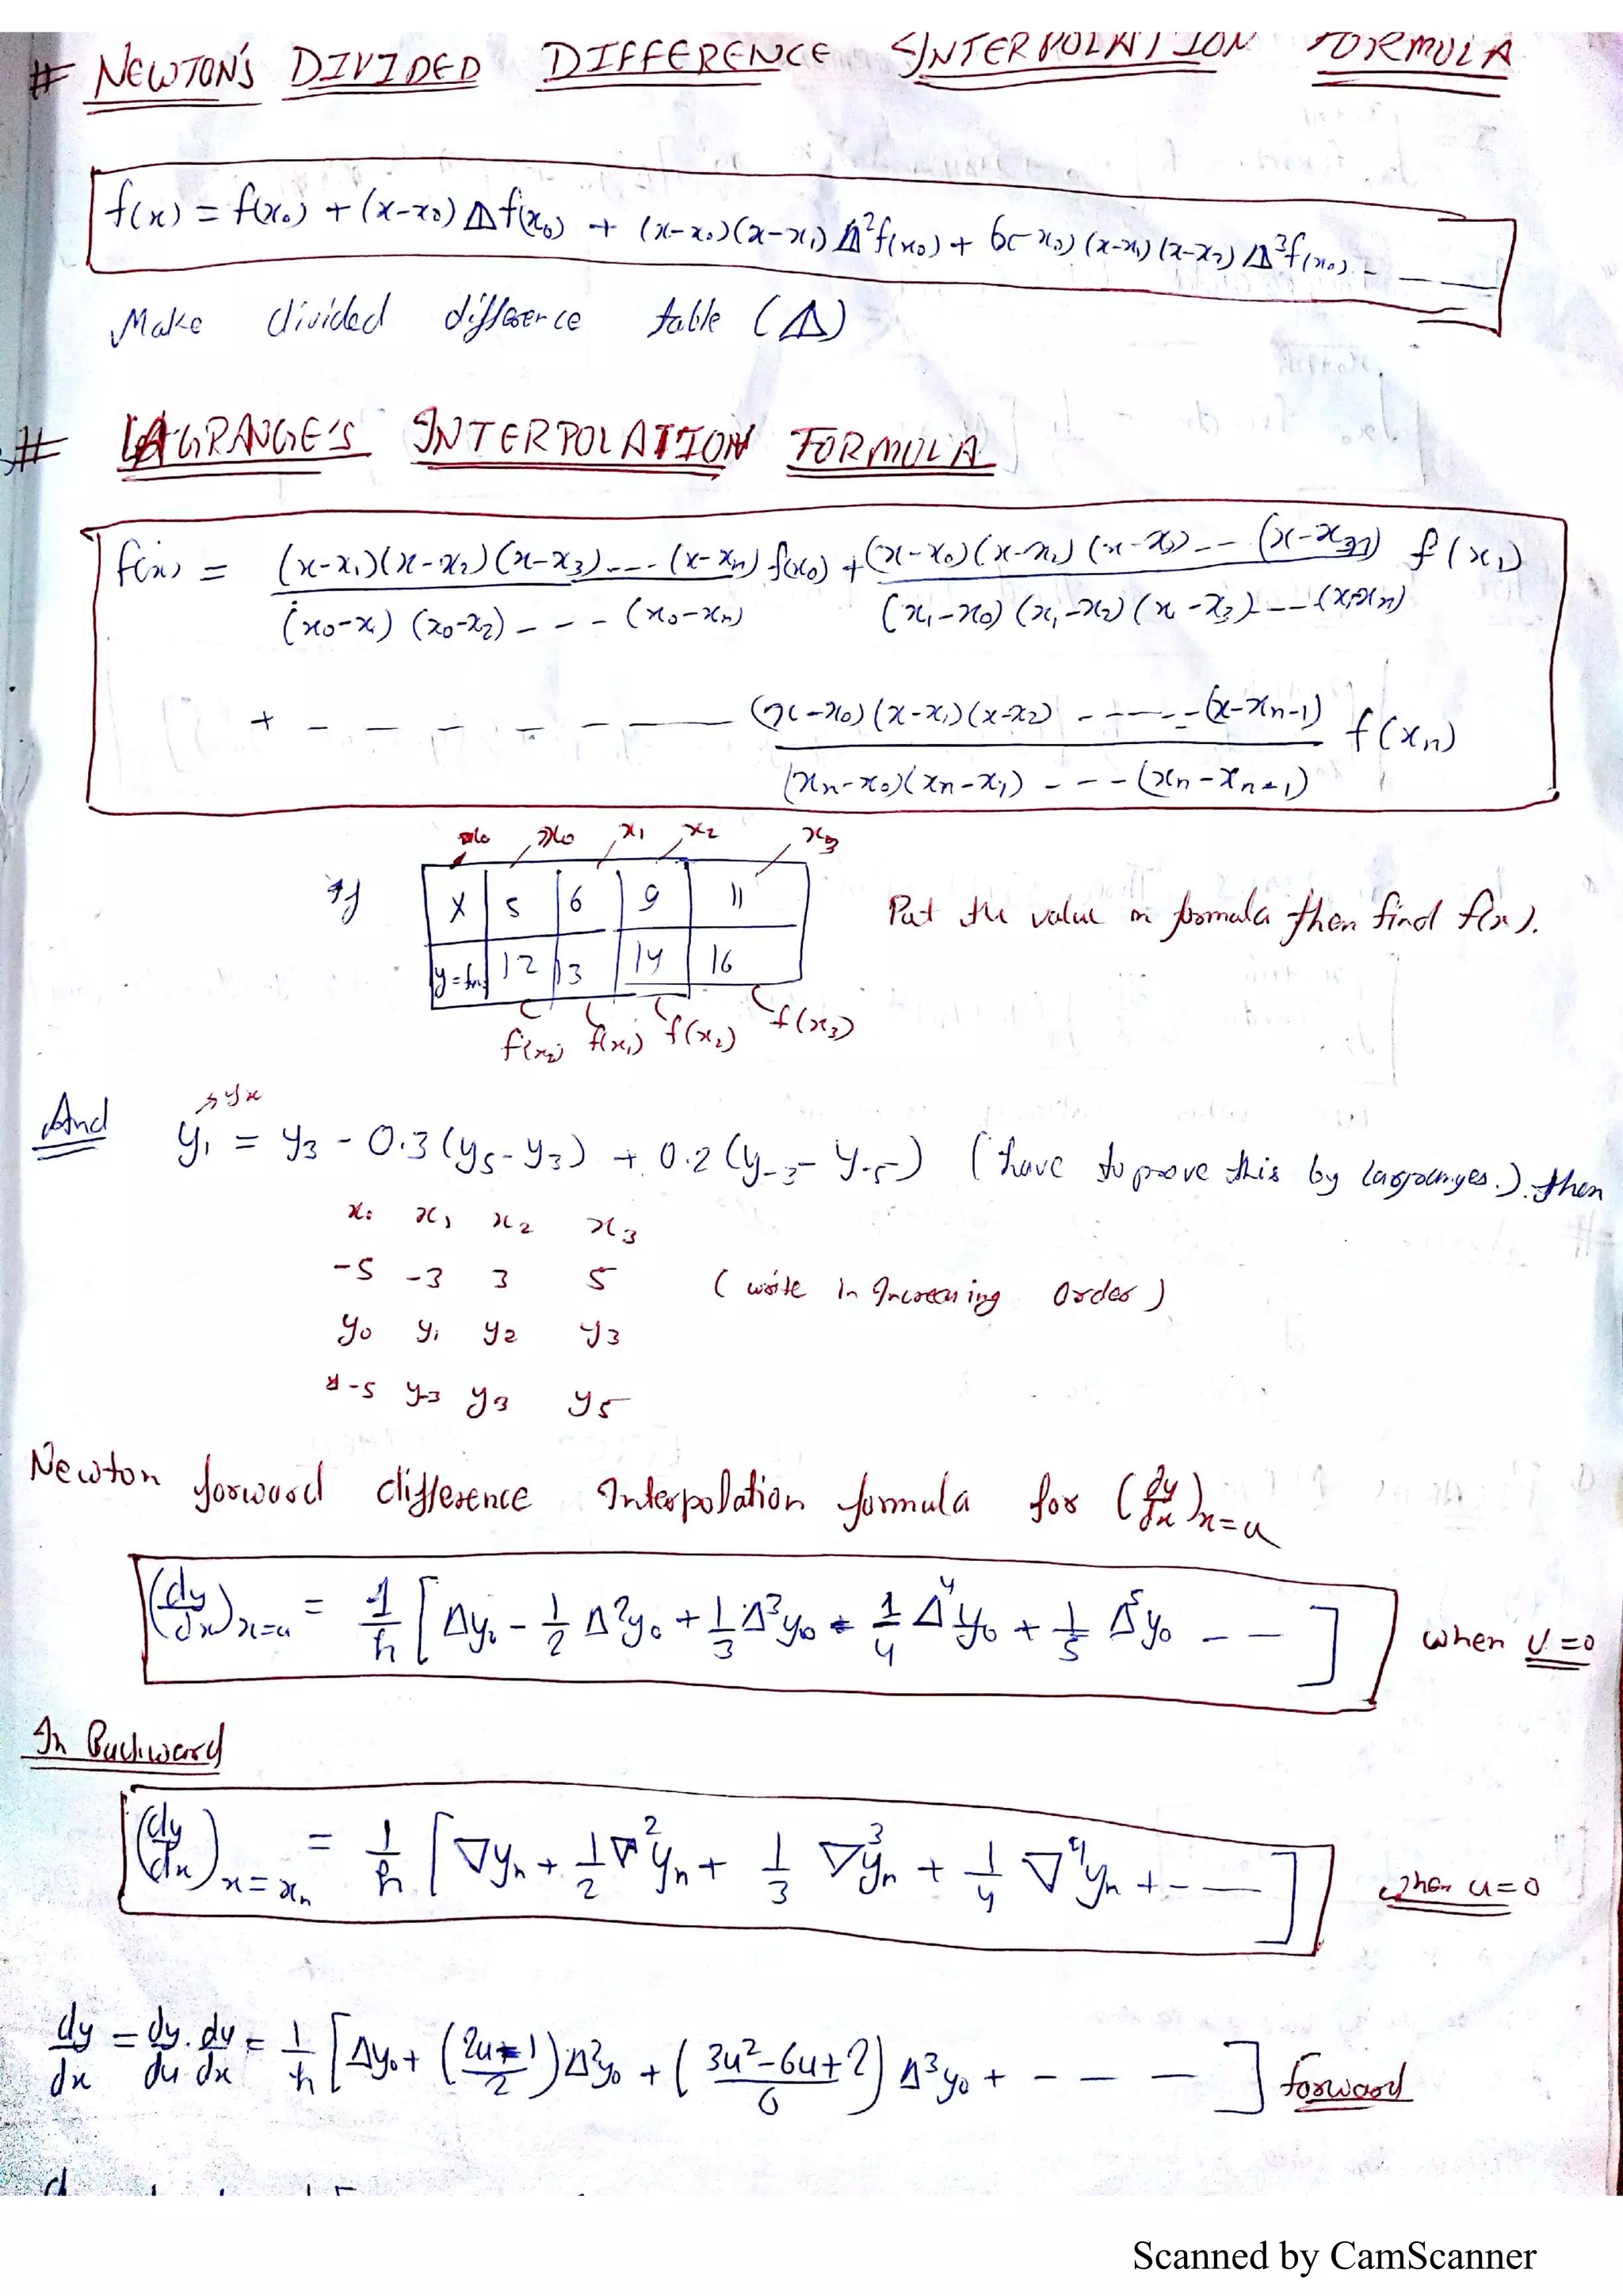 # NEWTON'S DIVIDED DIFFERENCE INTERPOLATION FORMULA
f(x) = f(x₀) + (x-x₀) Δf(x₀) + (x-x₀)(x-x₁) Δ²f(x₀) + (x-x₀)(x-x₁)(x-x₂) Δ³f(x₀) - —
Make divided difference table (Δ)
# LAGRANGE'S INTERPOLATION FORMULA
f(x) = (x-x₁)(x-x₂)(x-x₃)---- (x-xₙ) f(x₀) + (x-x₀)(x-x₂)(x-x₃)-- (x-xₙ) f(x₁)
(x₀-x₁) (x₀-x₂) - - - (x₀-xₙ) (x₁-x₀) (x₁-x₂) (x₁-x₃) --- (x₁-xₙ)
+ - - - - - — (x-x₀)(x-x₁)(x-x₂) ------ (x-xₙ₋₁) f(xₙ)
(xₙ-x₀)(xₙ-x₁) - - - (xₙ-xₙ₋₁)
x₀ x₁ x₂ x₃
If x 5 6 9 11 Put the value in formula then find f(x).
y=f(x) 12 13 14 16
f(x₁) f(x₂) f(x₃)
→yx
And y₁ = y₃ - 0.3 (y₅-y₃) + 0.2 (y₋₃- y₋₅) (have to prove this by lagranges.). then
x₀ x₁ x₂ x₃
-5 -3 3 5 (write in Increasing Order)
y₀ y₁ y₂ y₃
y-5 y-3 y₃ y₅
Newton forward difference Interpolation formula for (dy/dx)x=a
(dy/dx)x=a = 1/h [Δy₀ - 1/2 Δ²y₀ + 1/3 Δ³y₀ - 1/4 Δ⁴y₀ + 1/5 Δ⁵y₀ - - ] when U=0
In Backward
(dy/dx)x=xₙ = 1/h [∇yₙ + 1/2 ∇²yₙ + 1/3 ∇³yₙ + 1/4 ∇⁴yₙ + - — ] when u=0
dy/dx = dy/du . dy/dx = 1/h [Δy₀ + (2u-1/2) Δ²y₀ + (3u²-6u+2/6) Δ³y₀ + - - — ] forward
Scanned by CamScanner